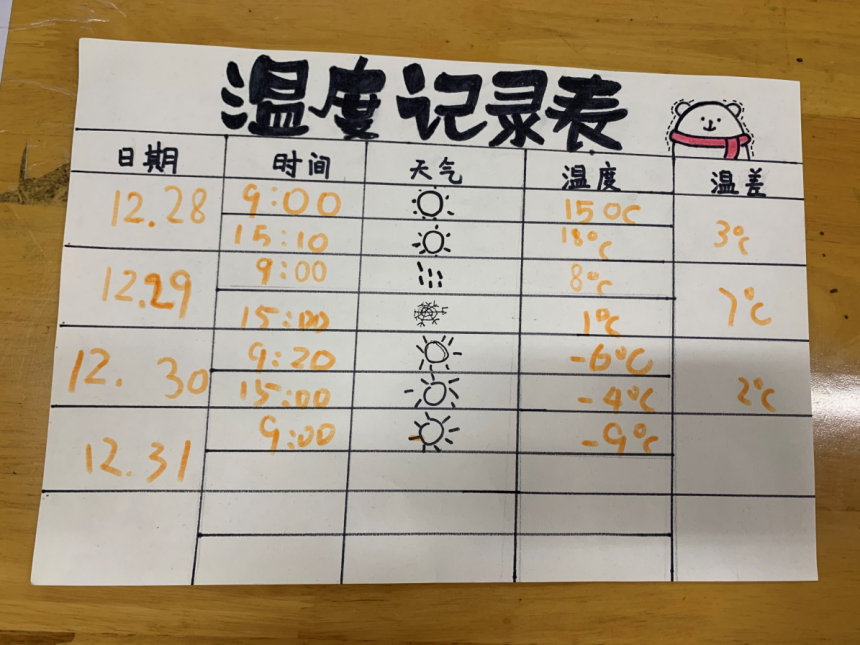 温度记录表
日期 时间 天气 温度 温差
12.28 9:00 15°C 3°C
15:10 18°C
12.29 9:00 8°C 7°C
15:00 1°C
12.30 9:20 -6°C 2°C
15:00 -4°C
12.31 9:00 -9°C